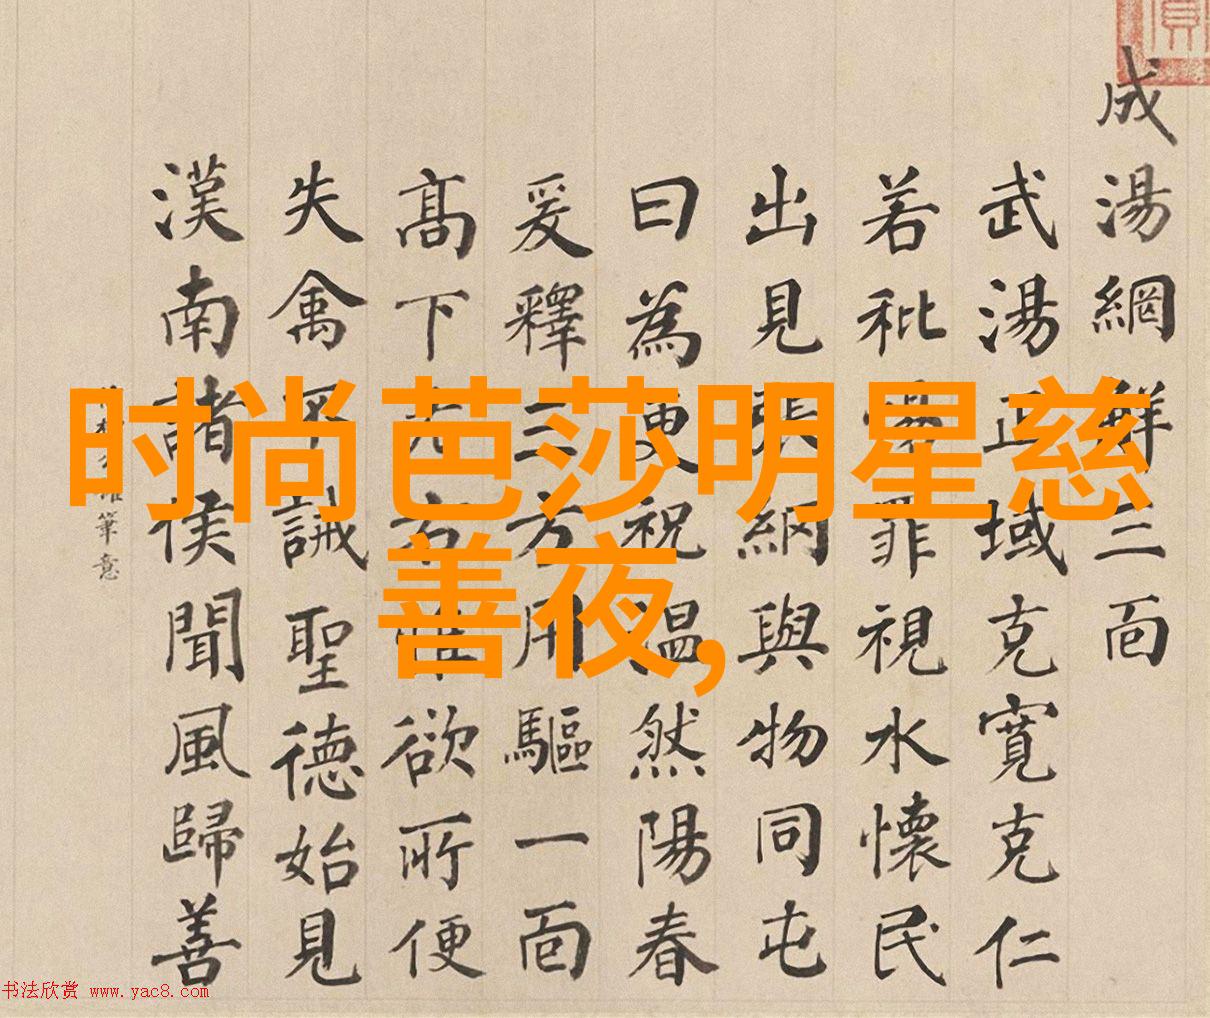 成湯網觧三面
武湯正域克寬克仁
若秕罪視水懷民
出見張網與物同屯
曰為更祝溫然陽春
爰釋三方用驅一面
高下左右惟欲所便
失禽不誡聖德始見
漢南諸侯聞風歸善
筆意
时尚芭莎明星慈
善夜,
书法欣赏 www.yac8.com